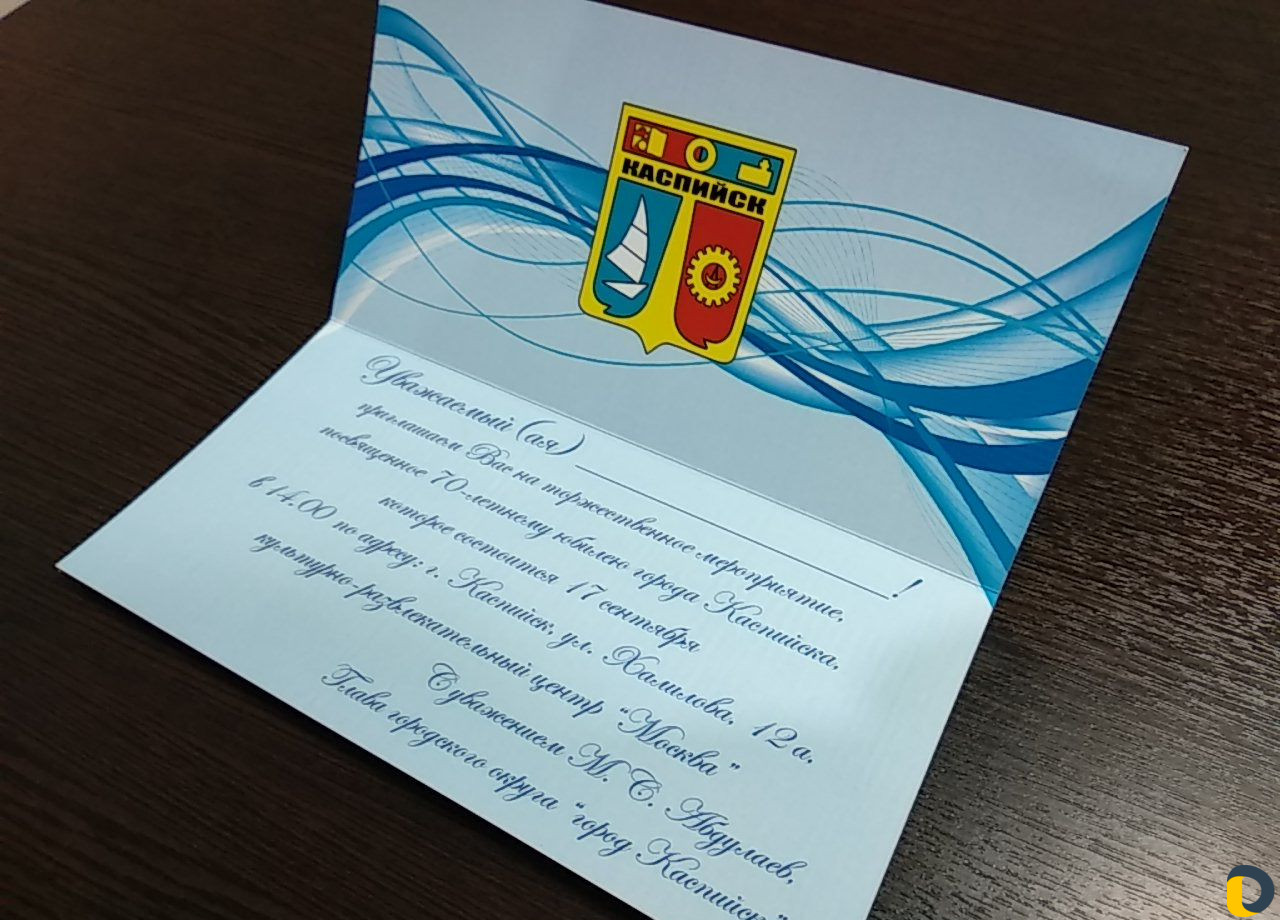 КАСПИЙСК
Уважаемый (ая) !
приглашаем Вас на торжественное мероприятие,
посвященное 70-летнему юбилею города Каспийска,
которое состоится 17 сентября
в 14.00 по адресу: г. Каспийск, ул. Халилова, 12 а,
культурно-развлекательный центр “Москва”
С уважением М. С. Абдулаев,
Глава городского округа “город Каспийск”